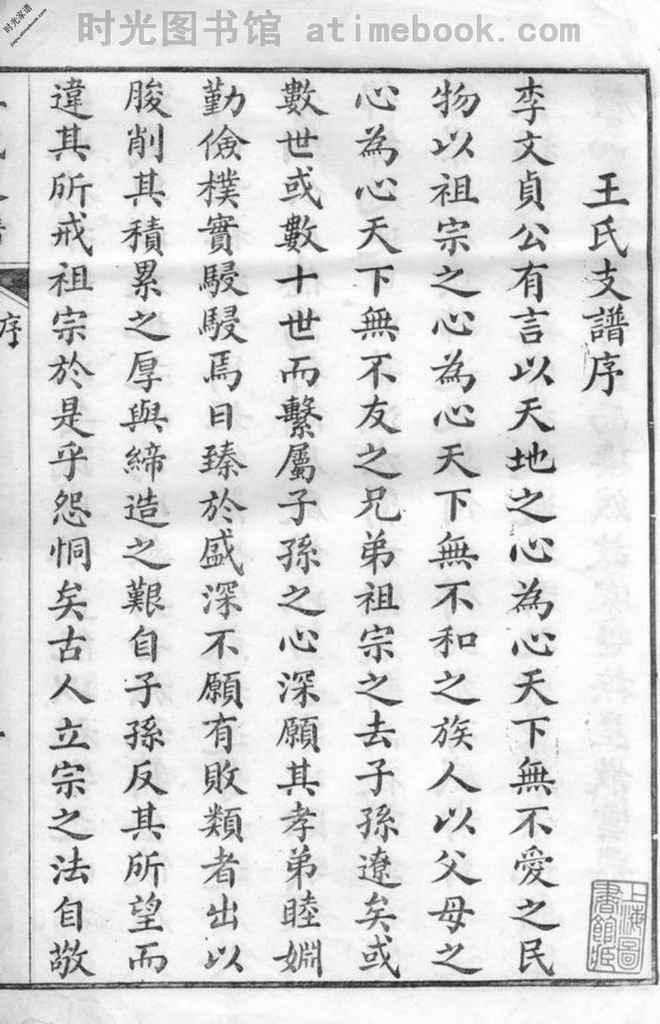 时光家谱
时光图书馆 atimebook.com
王氏支譜序
李文貞公有言以天地之心為心天下無不愛之民
物以祖宗之心為心天下無不和之族人以父母之
心為心天下無不友之兄弟祖宗之去子孫遼矣或
數世或數十世而繫屬子孫之心深願其孝弟睦婣
勤儉樸實駸駸焉日臻於盛深不願有敗類者出以
朘削其積累之厚與締造之艱自子孫反其所望而
違其所戒祖宗於是乎怨恫矣古人立宗之法自敬
序
上海圖
書館藏